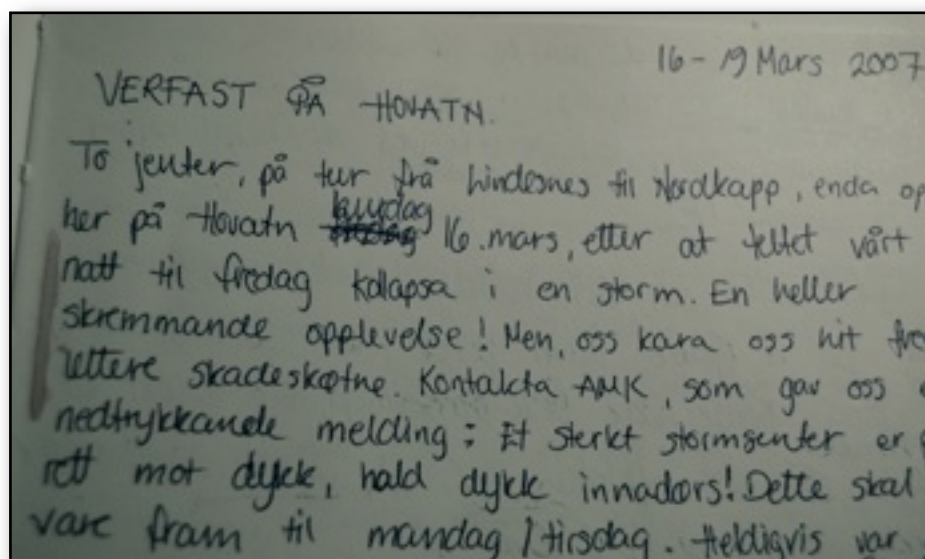 16-19 Mars 2007
VERFAST PÅ HOVATN.
To jenter, på tur frå Lindesnes til Nordkapp, enda op
her på Hovatn laurdag 16. mars, etter at teltet vårt
natt til fredag kollapsa i en storm. En heller
skremmande opplevelse! Men, oss kara oss hit fre
lettere skadeskotne. Kontakta AMK, som gav oss
nedtrykkande melding: Et sterkt stormsenter er
rett mot dykk, hald dykk innadørs! Dette skal
vare fram til mandag/tirsdag. Heldigvis var